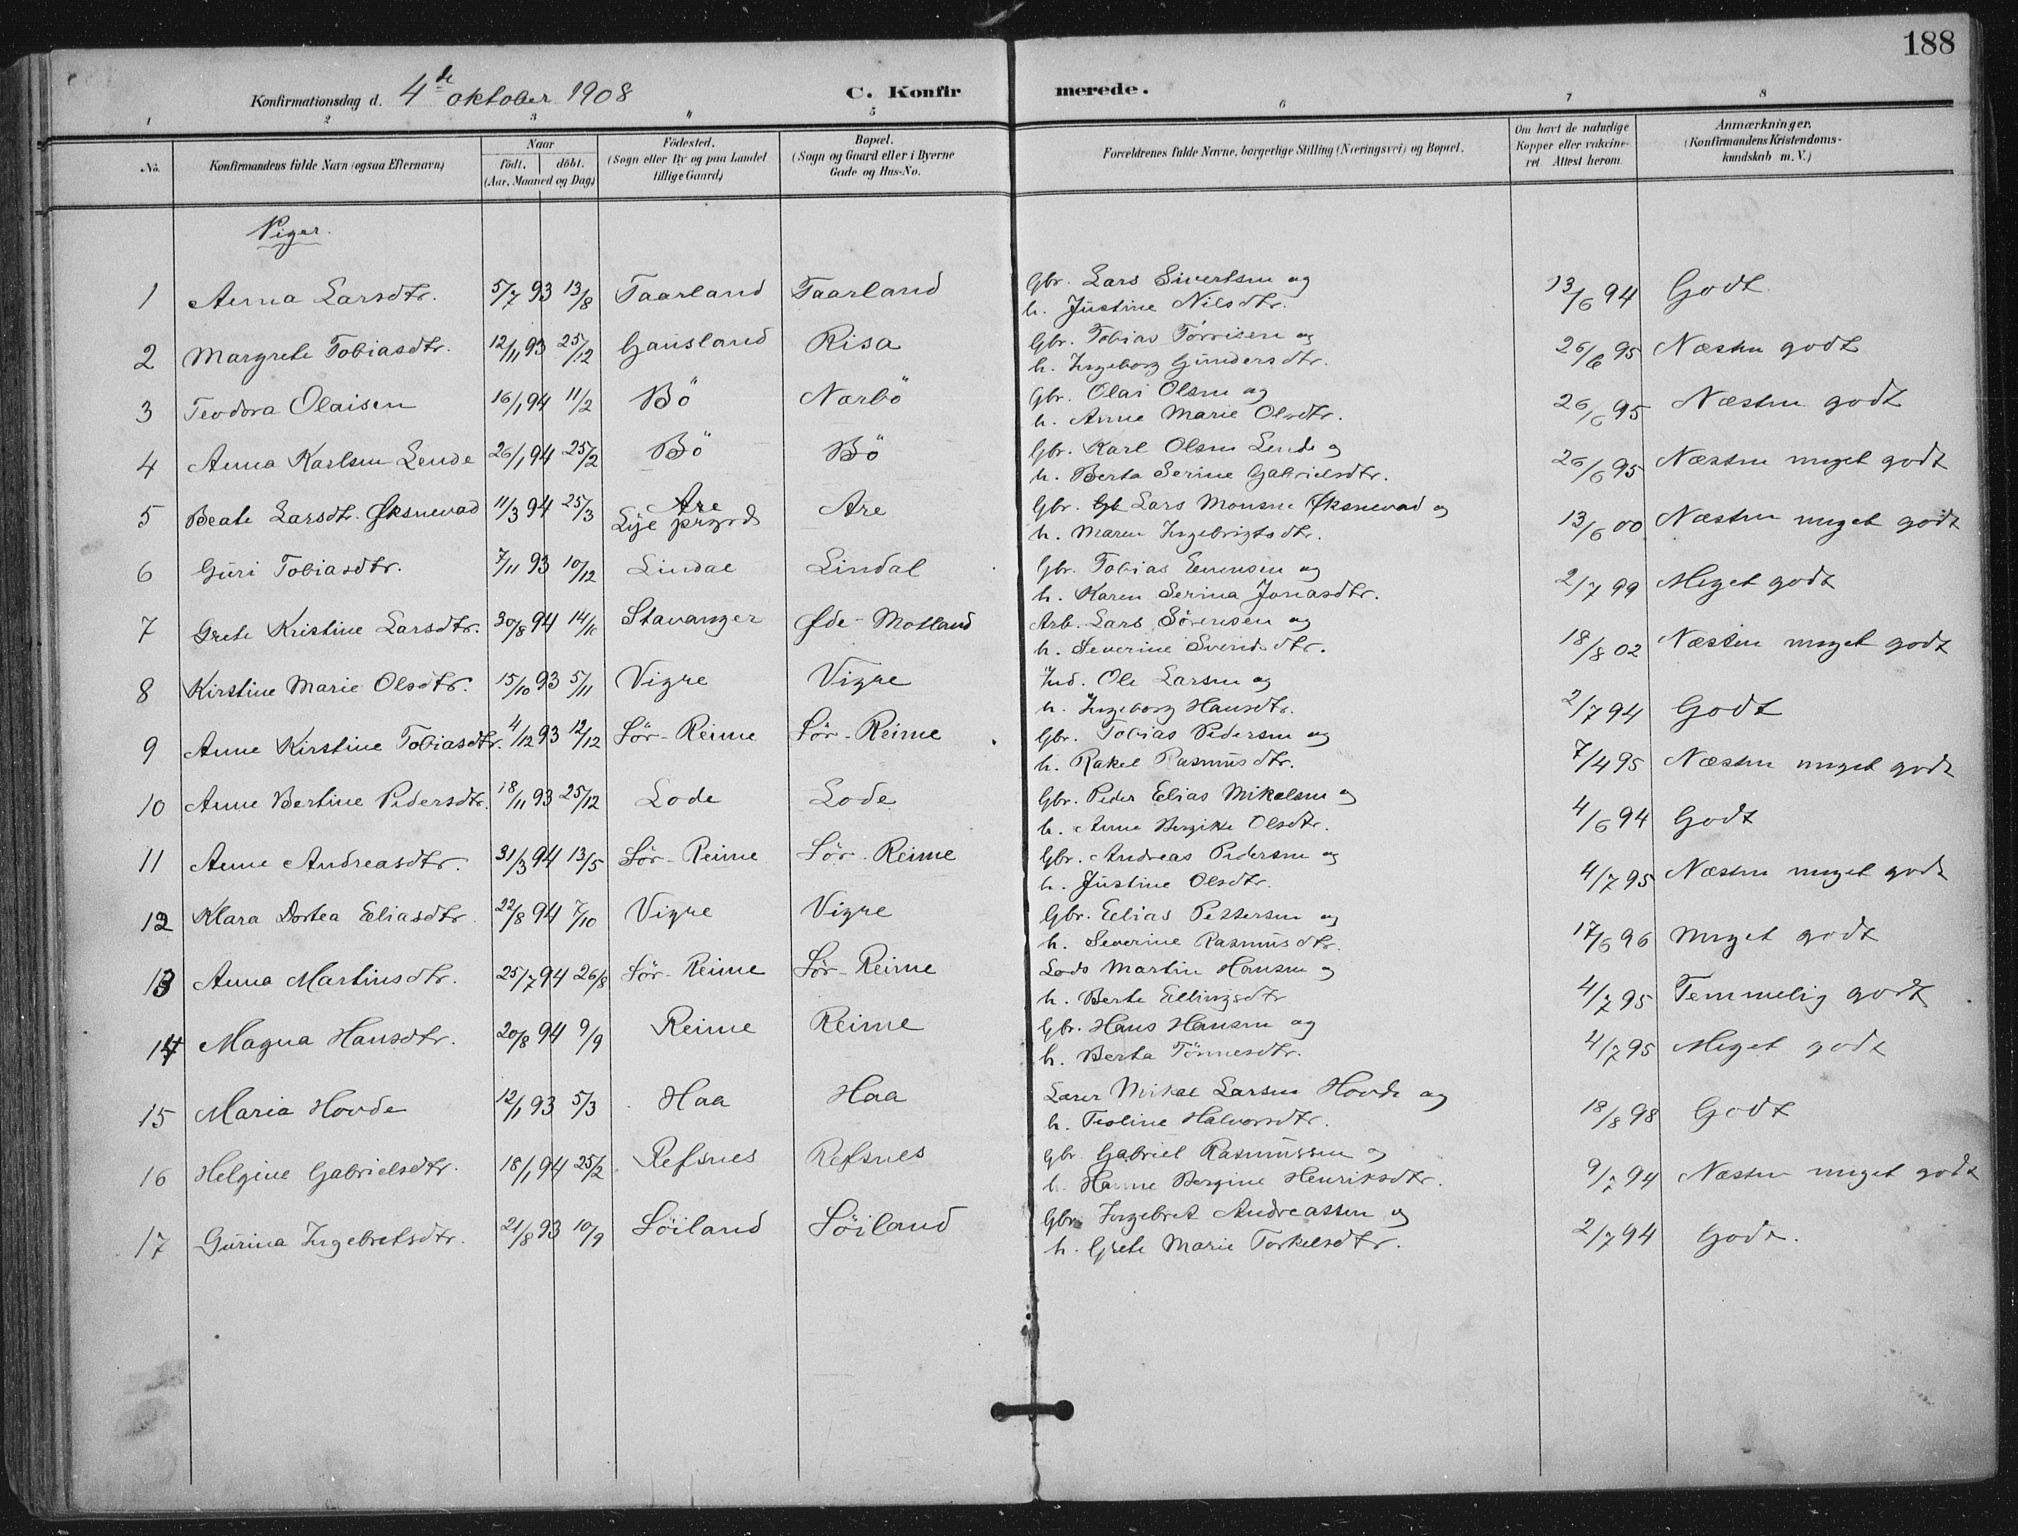 188
Konfirmationsdag d. 4de oktober 1908 C. Konfirmerede.
1 2 3 4 5 6 7 8
No. Konfirmandens fulde Navn (ogsaa Efternavn) Naar födt. döbt. (Aar, Maaned og Dag) Födested. (Sogn eller By og paa Landet tillige Gaard) Bopæl. (Sogn og Gaard eller i Byerne Gade og Hus-No. Forældrenes fulde Navne, borgerlige Stilling (Næringsvei) og Bopæl. Om havt de naturlige Kopper eller vakcineret Attest herom. Anmærkninger. (Konfirmandens Kristendomskundskab m. V.)
Piger.
1 Anna Larsdtr. 5/7 93 13/8 Taarland Taarland Gbr. Lars Sivertsen og 13/6 94 Godt
h. Justine Nilsdtr.
2 Margrete Tobiasdtr. 12/11 93 25/12 Gausland Risa Gbr. Tobias Tørrisen og 26/6 95 Næsten godt
h. Ingeborg Gundersdtr.
3 Teodora Olaisen 16/1 94 11/2 Bö Nærbö Gbr. Olai Olsen og 26/6 95 Næsten godt
h. Anne Marie Olsdtr.
4 Anna Karlsen Lende 26/1 94 25/2 Bö Bö Gbr. Karl Olsen Lende og 26/6 95 Næsten meget godt
h. Berta Serine Gabrielsdtr.
5 Beate Larsdtr. Øksnevad 11/3 94 25/3 Are Lye prgrd Are Gbr. Lars Monsen Øksnevad og 13/6 00 Næsten meget godt
h. Maren Ingebrigtsdtr.
6 Guri Tobiasdtr. 7/11 93 10/12 Lindal Lindal Gbr. Tobias Enensen og 2/7 99 Meget godt
h. Karen Serina Jonasdtr.
7 Grete Kristine Larsdtr. 30/8 94 14/10 Stavanger Øde-Motland Arb. Lars Sörensen og 18/8 02 Næsten meget godt
h. Severine Svendsdtr.
8 Kirstine Marie Olsdtr. 15/10 93 5/11 Vigre Vigre Ind. Ole Larsen og 2/7 94 Godt
h. Ingeborg Hansdtr.
9 Anne Kirstine Tobiasdtr. 4/12 93 12/12 Sör-Reime Sör-Reime Gbr. Tobias Pedersen og 7/4 95 Næsten meget godt
h. Rakel Rasmusdtr.
10 Anne Bertine Pedersdtr. 18/11 93 25/12 Lode Lode Gbr. Peder Elias Mikelsen og 4/6 94 Godt
h. Anne Bergitte Olsdtr.
11 Anne Andreasdtr. 31/3 94 13/5 Sör-Reime Sör-Reime Gbr. Andreas Pedersen og 4/7 95 Næsten meget godt
h. Justine Olsdtr.
12 Klara Dortea Eliasdtr 22/8 94 7/10 Vigre Vigre Gbr. Elias Pettersen og 17/6 96 meget godt
h. Severine Rasmusdtr.
13 Anna Martinsdtr. 25/7 94 26/8 Sör-Reime Sör-Reime Lods Martin Hansen og 4/7 95 Temmelig godt
h. Berte Ellingsdtr
14 Magna Hansdtr. 20/8 94 9/9 Reime Reime Gbr. Hans Hansen og 4/7 95 Meget godt
h. Berta Tönnesdtr.
15 Maria Hovde 12/1 93 5/3 Haa Haa Lærer Mikal Larsen Hovde og 18/8 98 Godt
h. Teoline Halvorsdtr.
16 Helgine Gabrielsdtr. 18/1 94 25/2 Refsnes Refsnes Gbr Gabriel Rasmussen og 9/7 94 Næsten meget godt
h. Hanne Bergine Henriksdtr.
17 Gurina Ingebretsdtr. 21/8 93 10/9 Söiland Söiland Gbr Ingebret Andreassen og 2/7 94 Godt.
h. Grete Marie Torkelsdtr.